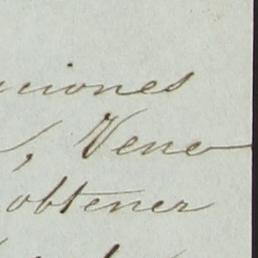 ciones
, Vene
obtener